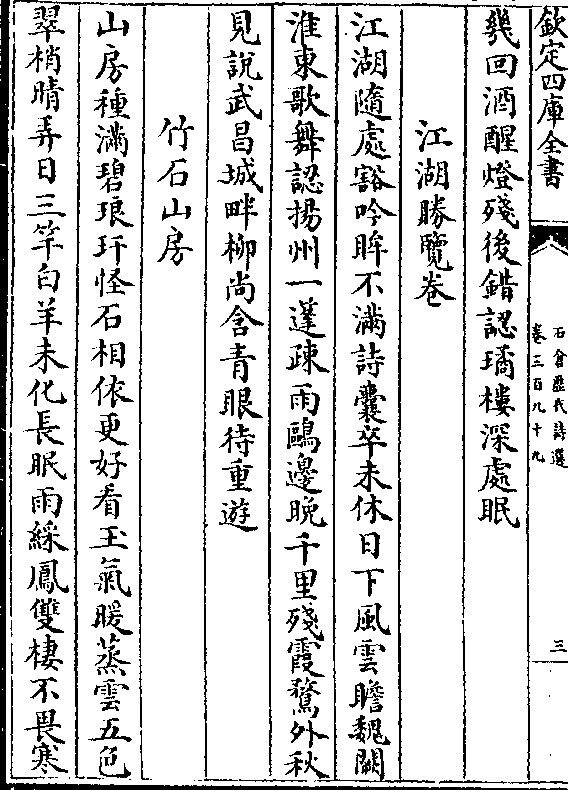 欽定四庫全書
石倉歷代詩選
卷三百九十九
三
幾回酒醒燈殘後錯認璚樓深處眠
江湖勝覽卷
江湖隨處豁吟眸不滿詩囊卒未休日下風雲瞻魏闕
淮東歌舞認揚州一蓬疎雨鷗邊晚千里殘霞鶩外秋
見說武昌城畔柳尚含青眼待重遊
竹石山房
山房種滿碧琅玕怪石相依更好看玉氣暖蒸雲五色
翠梢晴弄日三竿白羊未化長眠雨綵鳳雙棲不畏寒